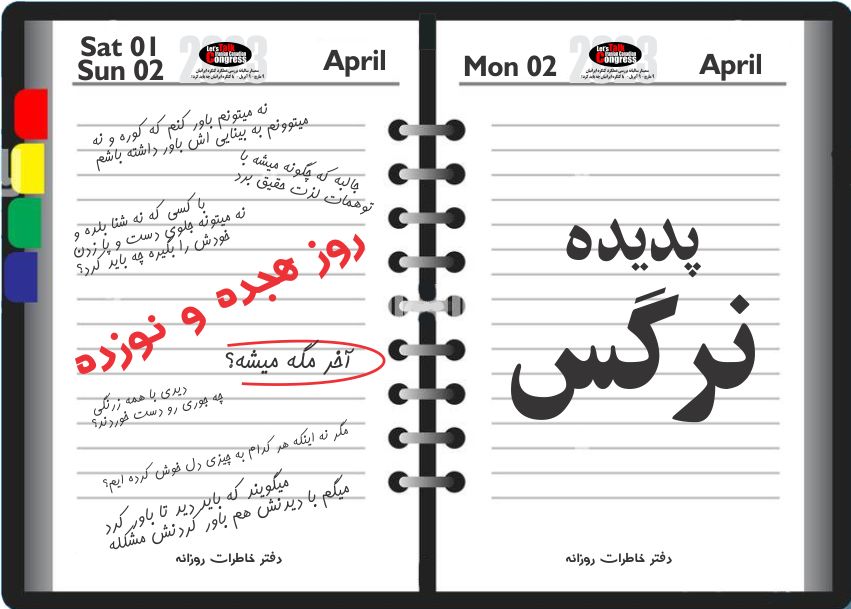 Sat 01
Sun 02
2023
Let's Talk
Iranian Canadian
Congress
April
نه میتونم باور کنم که کوره و نه
میتوونم به بینایی اش باور داشته باشم
جالبه که چگونه میشه با
توهمات لزت حقیق برد
با کسی که نه شنا بلده و
نه میتونه جلوی دست و پا زدن
خودش را بگیره چه باید کرد؟
روز هجده و نوزده
آخر مگه میشه؟
دیدی با همه زرنگی
چه جوری رو دست خوردند؟
مگر نه اینکه هر کدام به چیزی دل خوش کرده ایم؟
میگویند که باید دید تا باور کرد
میگم با دیدنش هم باور کردنش مشکله
دفتر خاطرات روزانه
Mon 02
2023
Let's Talk
Iranian Canadian
Congress
April
پدیده
نرگس
دفتر خاطرات روزانه